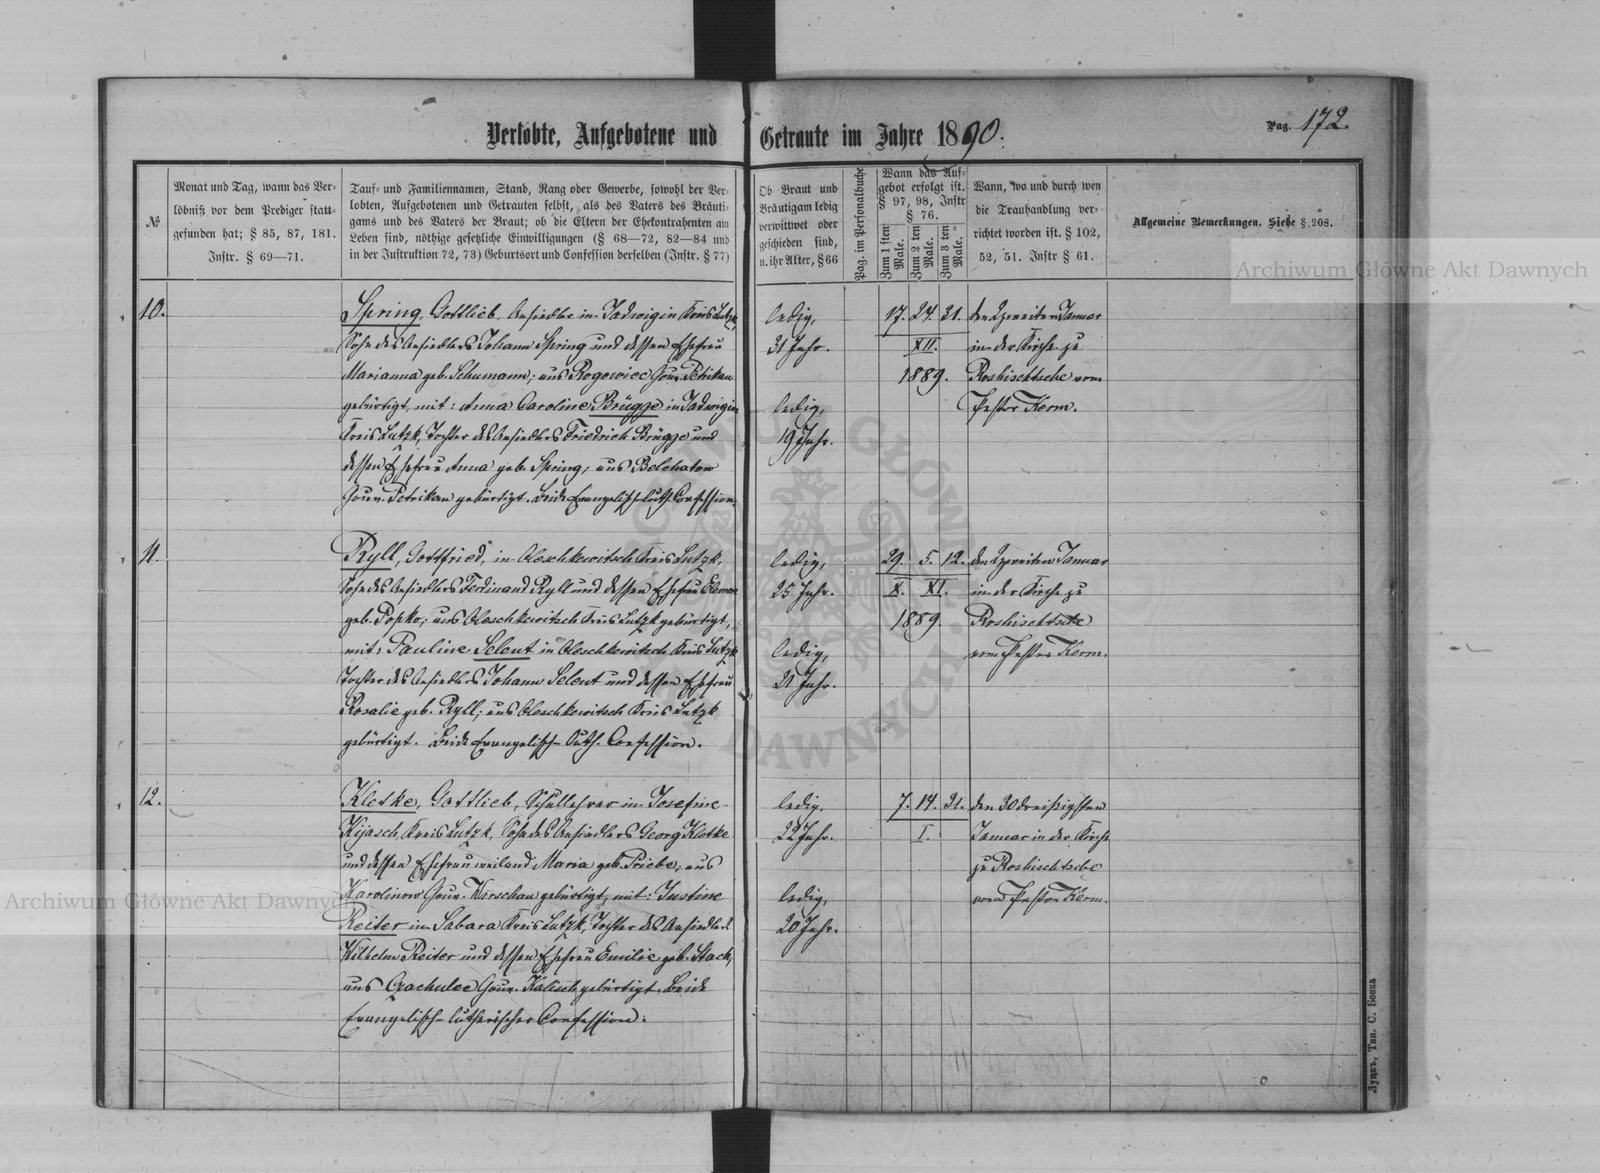 Verlobte, Aufgebotene und Getraute im Jahre 1890.
Pag. 172.
№
Monat und Tag, wann das Ver-
löbniß vor dem Prediger statt-
gefunden hat; § 85, 87, 181.
Instr. § 69—71.
Tauf- und Familiennamen, Stand, Rang oder Gewerbe, sowohl der Ver-
lobten, Aufgebotenen und Getrauten selbst, als des Vaters des Bräuti-
gams und des Vaters der Braut; ob die Eltern der Ehekontrahenten am
Leben sind, nöthige gesetzliche Einwilligungen (§ 68—72, 82—84 und
in der Instruktion 72, 73) Geburtsort und Confession derselben (Instr. § 77)
Ob Braut und
Bräutigam ledig
verwittwet oder
geschieden sind,
u. ihr Alter, § 66
Pag. im Personalbuche
Wann das Auf-
gebot erfolgt ist.
§ 97, 98, Instr
§ 76.
Zum 1 sten Male.
Zum 2 ten Male.
Zum 3 ten Male.
Wann, wo und durch wen
die Trauhandlung ver-
richtet worden ist. § 102,
52, 51. Instr § 61.
Allgemeine Bemerkungen. Siehe § 208.
10.
Spring, Gottlieb, Ansiedler in Jadwigin Kreis Lutzk,
Sohn des Ansiedlers Johann Spring und dessen Ehefrau
Marianna geb. Schumann; aus Rogowiec Gouv. Petrikau
gebürtigt, mit: Anna Caroline Brügge in Jadwigin
Kreis Lutzk, Tochter des Ansiedlers Friedrich Brügge und
dessen Ehefrau Anna geb. Spring, aus Belchatow
Gouv. Petrikau gebürtigt. Beide Evangelisch-luth. Confession.
ledig,
21 Jahr.
ledig,
19 Jahr.
17. 24. 31.
XII.
1889.
den 2 zweiten Januar
in der Kirche zu
Roshischtsche vom
Pastor Kerm.
11.
Ryll, Gottfried, in Oleschkewitsch Kreis Lutzk,
Sohn des Ansiedlers Ferdinand Ryll und dessen Ehefrau
geb. Popko; aus Oleschkewitsch Kreis Lutzk gebürtigt,
mit: Pauline Selent in Oleschkewitsch Kreis Lutzk
Tochter des Ansiedlers Johann Selent und dessen Ehefrau
Rosalie geb. Ryll; aus Oleschkewitsch Kreis Lutzk
gebürtigt. Beide Evangelisch-Luth. Confession.
ledig,
25 Jahr.
ledig,
21 Jahr.
29. 5. 12.
X. XI.
1889.
den 2 zweiten Januar
in der Kirche zu
Roshischtsche
vom Pastor Kerm.
12.
Kletke, Gottlieb, Schullehrer in Josefine-
Kijasch, Kreis Lutzk, Sohn des Ansiedlers Georg Kletke
und dessen Ehefrau weiland Maria geb. Priebe; aus
Karolinow Gouv. Warschau gebürtigt, mit: Justine
Reiter in Sabara Kreis Lutzk, Tochter des Ansiedlers
Wilhelm Reiter und dessen Ehefrau Emilie geb. Stach,
aus Gouv. Kalisch gebürtigt. Beide
Evangelisch-lutherischer Confession.
ledig,
22 Jahr.
ledig,
20 Jahr.
7. 14. 21.
I.
den 30 dreißigsten
Januar in der Kirche
zu Roshischtsche
vom Pastor Kerm.
Луцкъ, Тип. С. Бонка
Archiwum Główne Akt Dawnych
Archiwum Główne Akt Dawnych